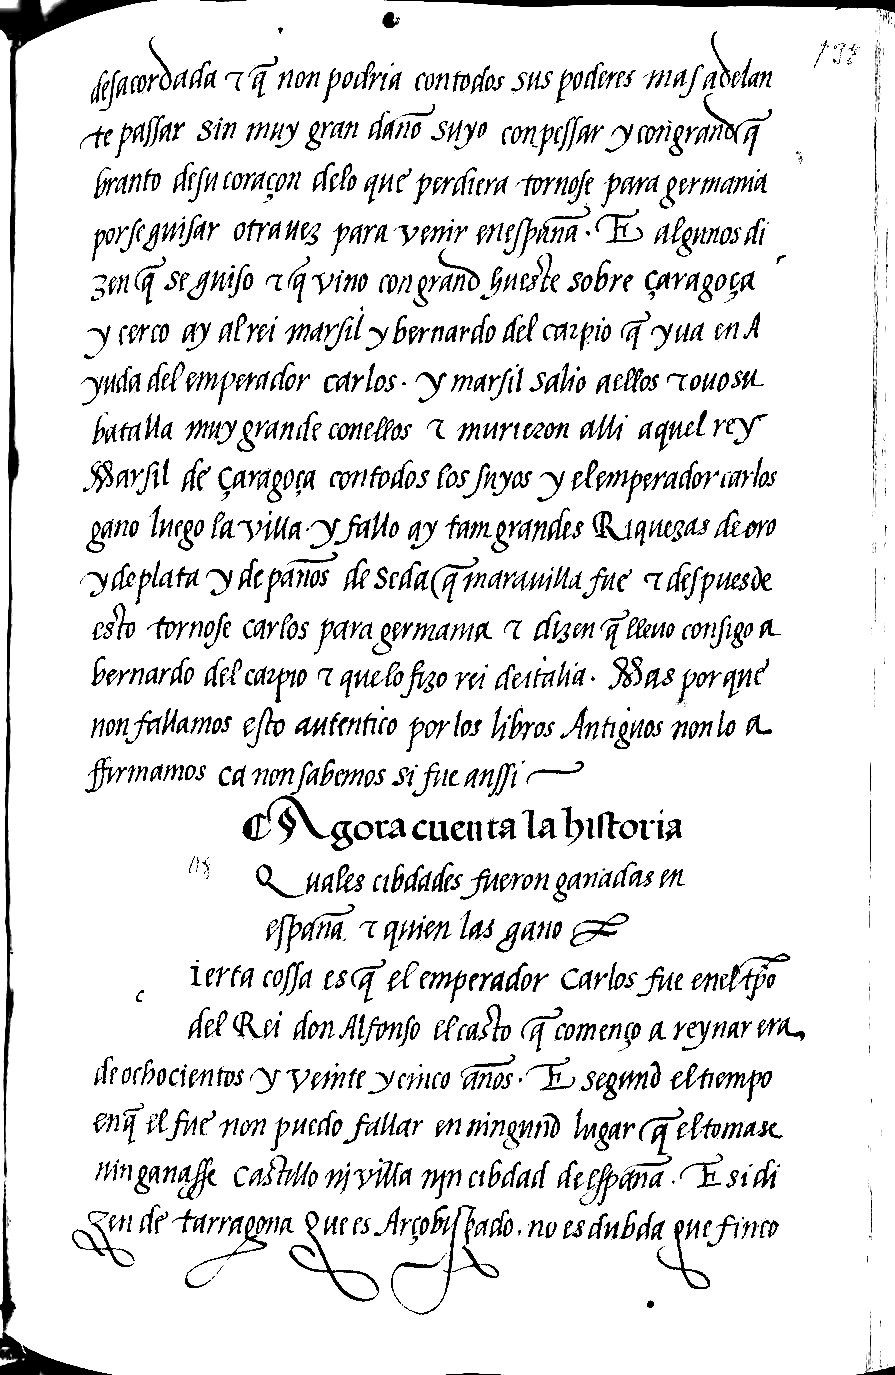 138
desacordada τ q̃ non podria contodos sus poderes mas adelan
te passar sin muy gran daño suyo conpessar y congrand q̃
branto desu coraçon delo que perdiera tornose para germania
porse guisar otra uez para venir enespaña. E algunos di
zen q̃ se guiso τ q̃ vino con grand hueste sobre çaragoça
y cerco ay al rei marsil y bernardo del carpio q̃ yua en A
yuda del emperador carlos. y marsil salio aellos τ ouo su
batalla muy grande conellos τ murieron alli aquel rey
Marsil de çaragoça contodos los suyos y el emperador carlos
gano luego la villa. y fallo ay tam grandes Riquezas de oro
y de plata y de paños de seda q̃ marauilla fue τ despues de
esto tornose carlos para germania τ dizen q̃ lleuo consigo a
bernardo del carpio τ que lo fizo rei de italia. Mas por que
non fallamos esto autentico por los libros Antiguos non lo a
ffirmamos ca non sabemos si fue anssi
Agora cuenta la historia
118
Quales cibdades fueron ganadas en
españa. τ quien las gano
c
ierta cossa es q̃ el emperador Carlos fue enel tp̃o
del Rei don Alfonso el casto q̃ començo a reynar era
de ochocientos y veinte y cinco años. E segund el tiempo
enq̃ el fue non puedo fallar en ningund lugar q̃ el tomase
nin ganasse castillo nj villa njn cibdad de españa. E si di
zen de tarragona que es Arçobispado. no es dubda que finco